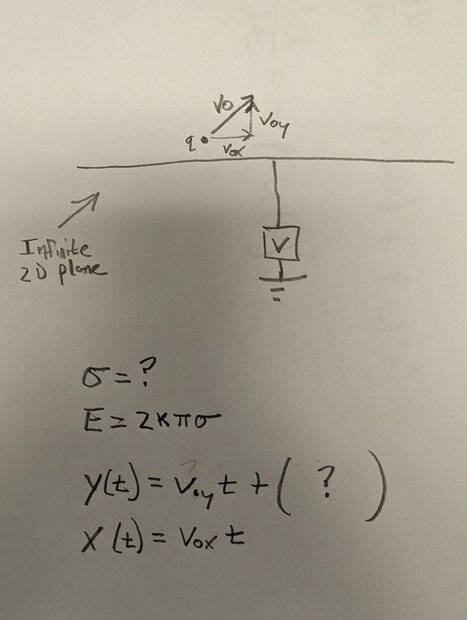 v0
v0y
q
v0x
Infinite
2D plane
V
σ = ?
E = 2kπσ
y(t) = v0yt + ( ? )
x(t) = v0xt